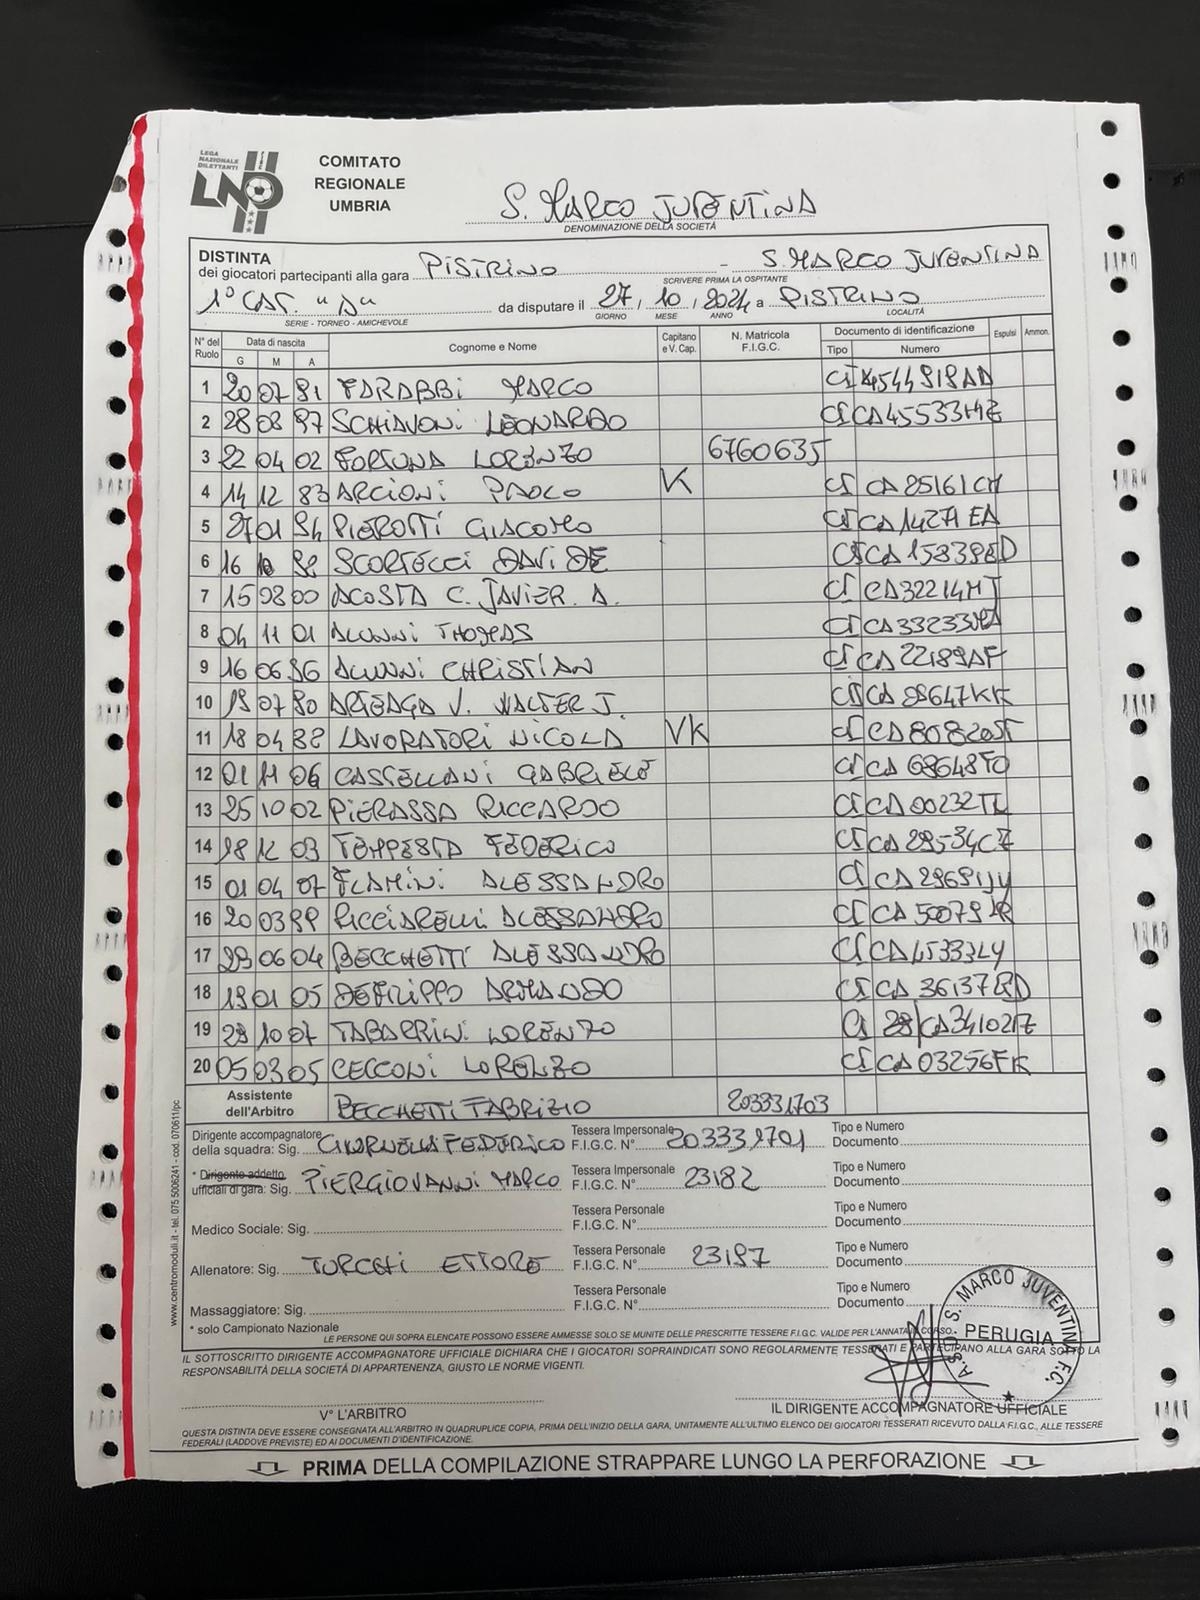 LEGA
NAZIONALE
DILETTANTI
LND
COMITATO
REGIONALE
UMBRIA
S. MARCO JUVENTINA
DENOMINAZIONE DELLA SOCIETÀ
DISTINTA
dei giocatori partecipanti alla gara PISTRINO - S. MARCO JUVENTINA
SCRIVERE PRIMA LA OSPITANTE
1° CAT. "A" da disputare il 27 / 10 / 2024 a PISTRINO
SERIE - TORNEO - AMICHEVOLE GIORNO MESE ANNO LOCALITÀ
N° del Ruolo Data di nascita G M A Cognome e Nome Capitano e V. Cap. N. Matricola F.I.G.C. Documento di identificazione Tipo Numero Espulsi Ammon.
1 20 07 91 FARABBI MARCO CI
2 28 08 97 SCHIAVONI LEONARDO CI
3 22 04 02 FORTUNA LORENZO 6760635
4 14 12 83 ARCIONI PAOLO K CI CA25161CH
5 27 01 94 PIEROTTI GIACOMO CI
6 16 SCORTECCI DAVIDE CI
7 15 08 00 ACOSTA C. JAVIER. A. CI CA32214MJ
8 04 11 01 ALUNNI THOMAS CI
9 16 06 96 ALUNNI CHRISTIAN CI CA22189AF
10 19 07 90 ARTEAGA V. WALTER J. CI
11 18 04 LAVORATORI NICOLA VK CI
12 01 11 06 CASTELLANI GABRIELE CI
13 25 10 02 PIERASSA RICCARDO CI CA00232TL
14 12 03 TEMPESTA FEDERICO CI
15 01 04 07 FLAMINI ALESSANDRO CI
16 20 03 99 RICCIARELLI ALESSANDRO CI
17 29 06 04 BECCHETTI ALESSANDRO CI CA45333LY
18 19 01 05 DEFILIPPO ARMANDO CI
19 29 10 07 TABARRINI LORENZO CI
20 05 03 05 CECCONI LORENZO CI CA03256FK
Assistente dell'Arbitro BECCHETTI FABRIZIO 203331703
Dirigente accompagnatore della squadra: Sig. FEDERICO Tessera Impersonale F.I.G.C. N° 203331701 Tipo e Numero Documento
* Dirigente addetto ufficiali di gara: Sig. PIERGIOVANNI MARCO Tessera Impersonale F.I.G.C. N° 23182 Tipo e Numero Documento
Medico Sociale: Sig. Tessera Personale F.I.G.C. N° Tipo e Numero Documento
Allenatore: Sig. TURCHI ETTORE Tessera Personale F.I.G.C. N° 23197 Tipo e Numero Documento
Massaggiatore: Sig. Tessera Personale F.I.G.C. N° Tipo e Numero Documento
* solo Campionato Nazionale
LE PERSONE QUI SOPRA ELENCATE POSSONO ESSERE AMMESSE SOLO SE MUNITE DELLE PRESCRITTE TESSERE F.I.G.C. VALIDE PER L'ANNATA IN CORSO.
IL SOTTOSCRITTO DIRIGENTE ACCOMPAGNATORE UFFICIALE DICHIARA CHE I GIOCATORI SOPRAINDICATI SONO REGOLARMENTE TESSERATI E PARTECIPANO ALLA GARA SOTTO LA
RESPONSABILITÀ DELLA SOCIETÀ DI APPARTENENZA, GIUSTO LE NORME VIGENTI.
A.S.D. S. MARCO JUVENTINA F.C.
PERUGIA
V° L'ARBITRO IL DIRIGENTE ACCOMPAGNATORE UFFICIALE
QUESTA DISTINTA DEVE ESSERE CONSEGNATA ALL'ARBITRO IN QUADRUPLICE COPIA, PRIMA DELL'INIZIO DELLA GARA, UNITAMENTE ALL'ULTIMO ELENCO DEI GIOCATORI TESSERATI RICEVUTO DALLA F.I.G.C., ALLE TESSERE
FEDERALI (LADDOVE PREVISTE) ED AI DOCUMENTI D'IDENTIFICAZIONE.
PRIMA DELLA COMPILAZIONE STRAPPARE LUNGO LA PERFORAZIONE
www.centromoduli.it - tel. 075 5006241 - cod. 070611/pc